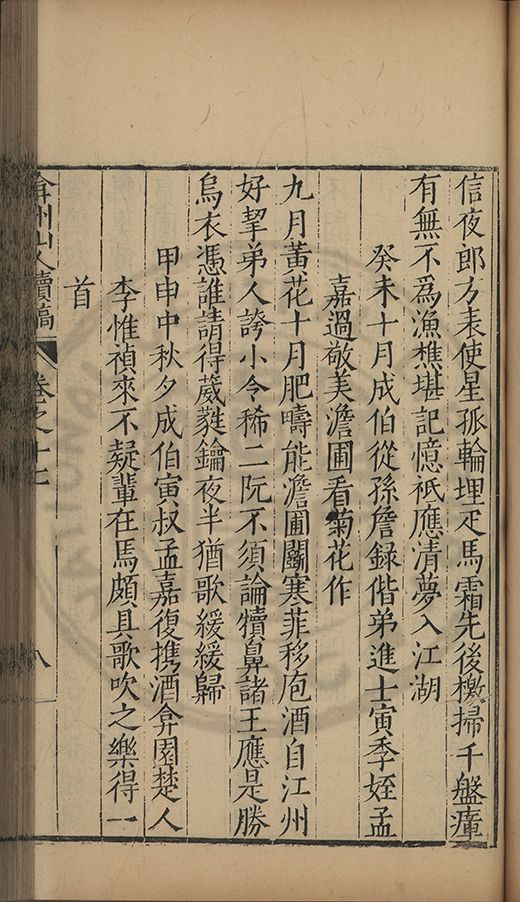 信夜郎方表使星孤輪埋疋馬霜先後檄掃千盤瘴
有無不爲漁樵堪記憶祇應清夢入江湖
癸未十月成伯從孫詹録偕弟進士寅季姪孟
嘉過敬美澹圃看菊花作
九月黃花十月肥疇能澹圃闘寒菲移庖酒自江州
好挈弟人誇小令稀二阮不須論犢鼻諸王應是勝
烏衣憑誰請得葳蕤鑰夜半猶歌緩緩歸
甲申中秋夕成伯寅叔孟嘉復携酒弇園楚人
李惟禎來不疑輩在馬頗具歌吹之樂得一
首
弇州山人續稿 卷之十七 八